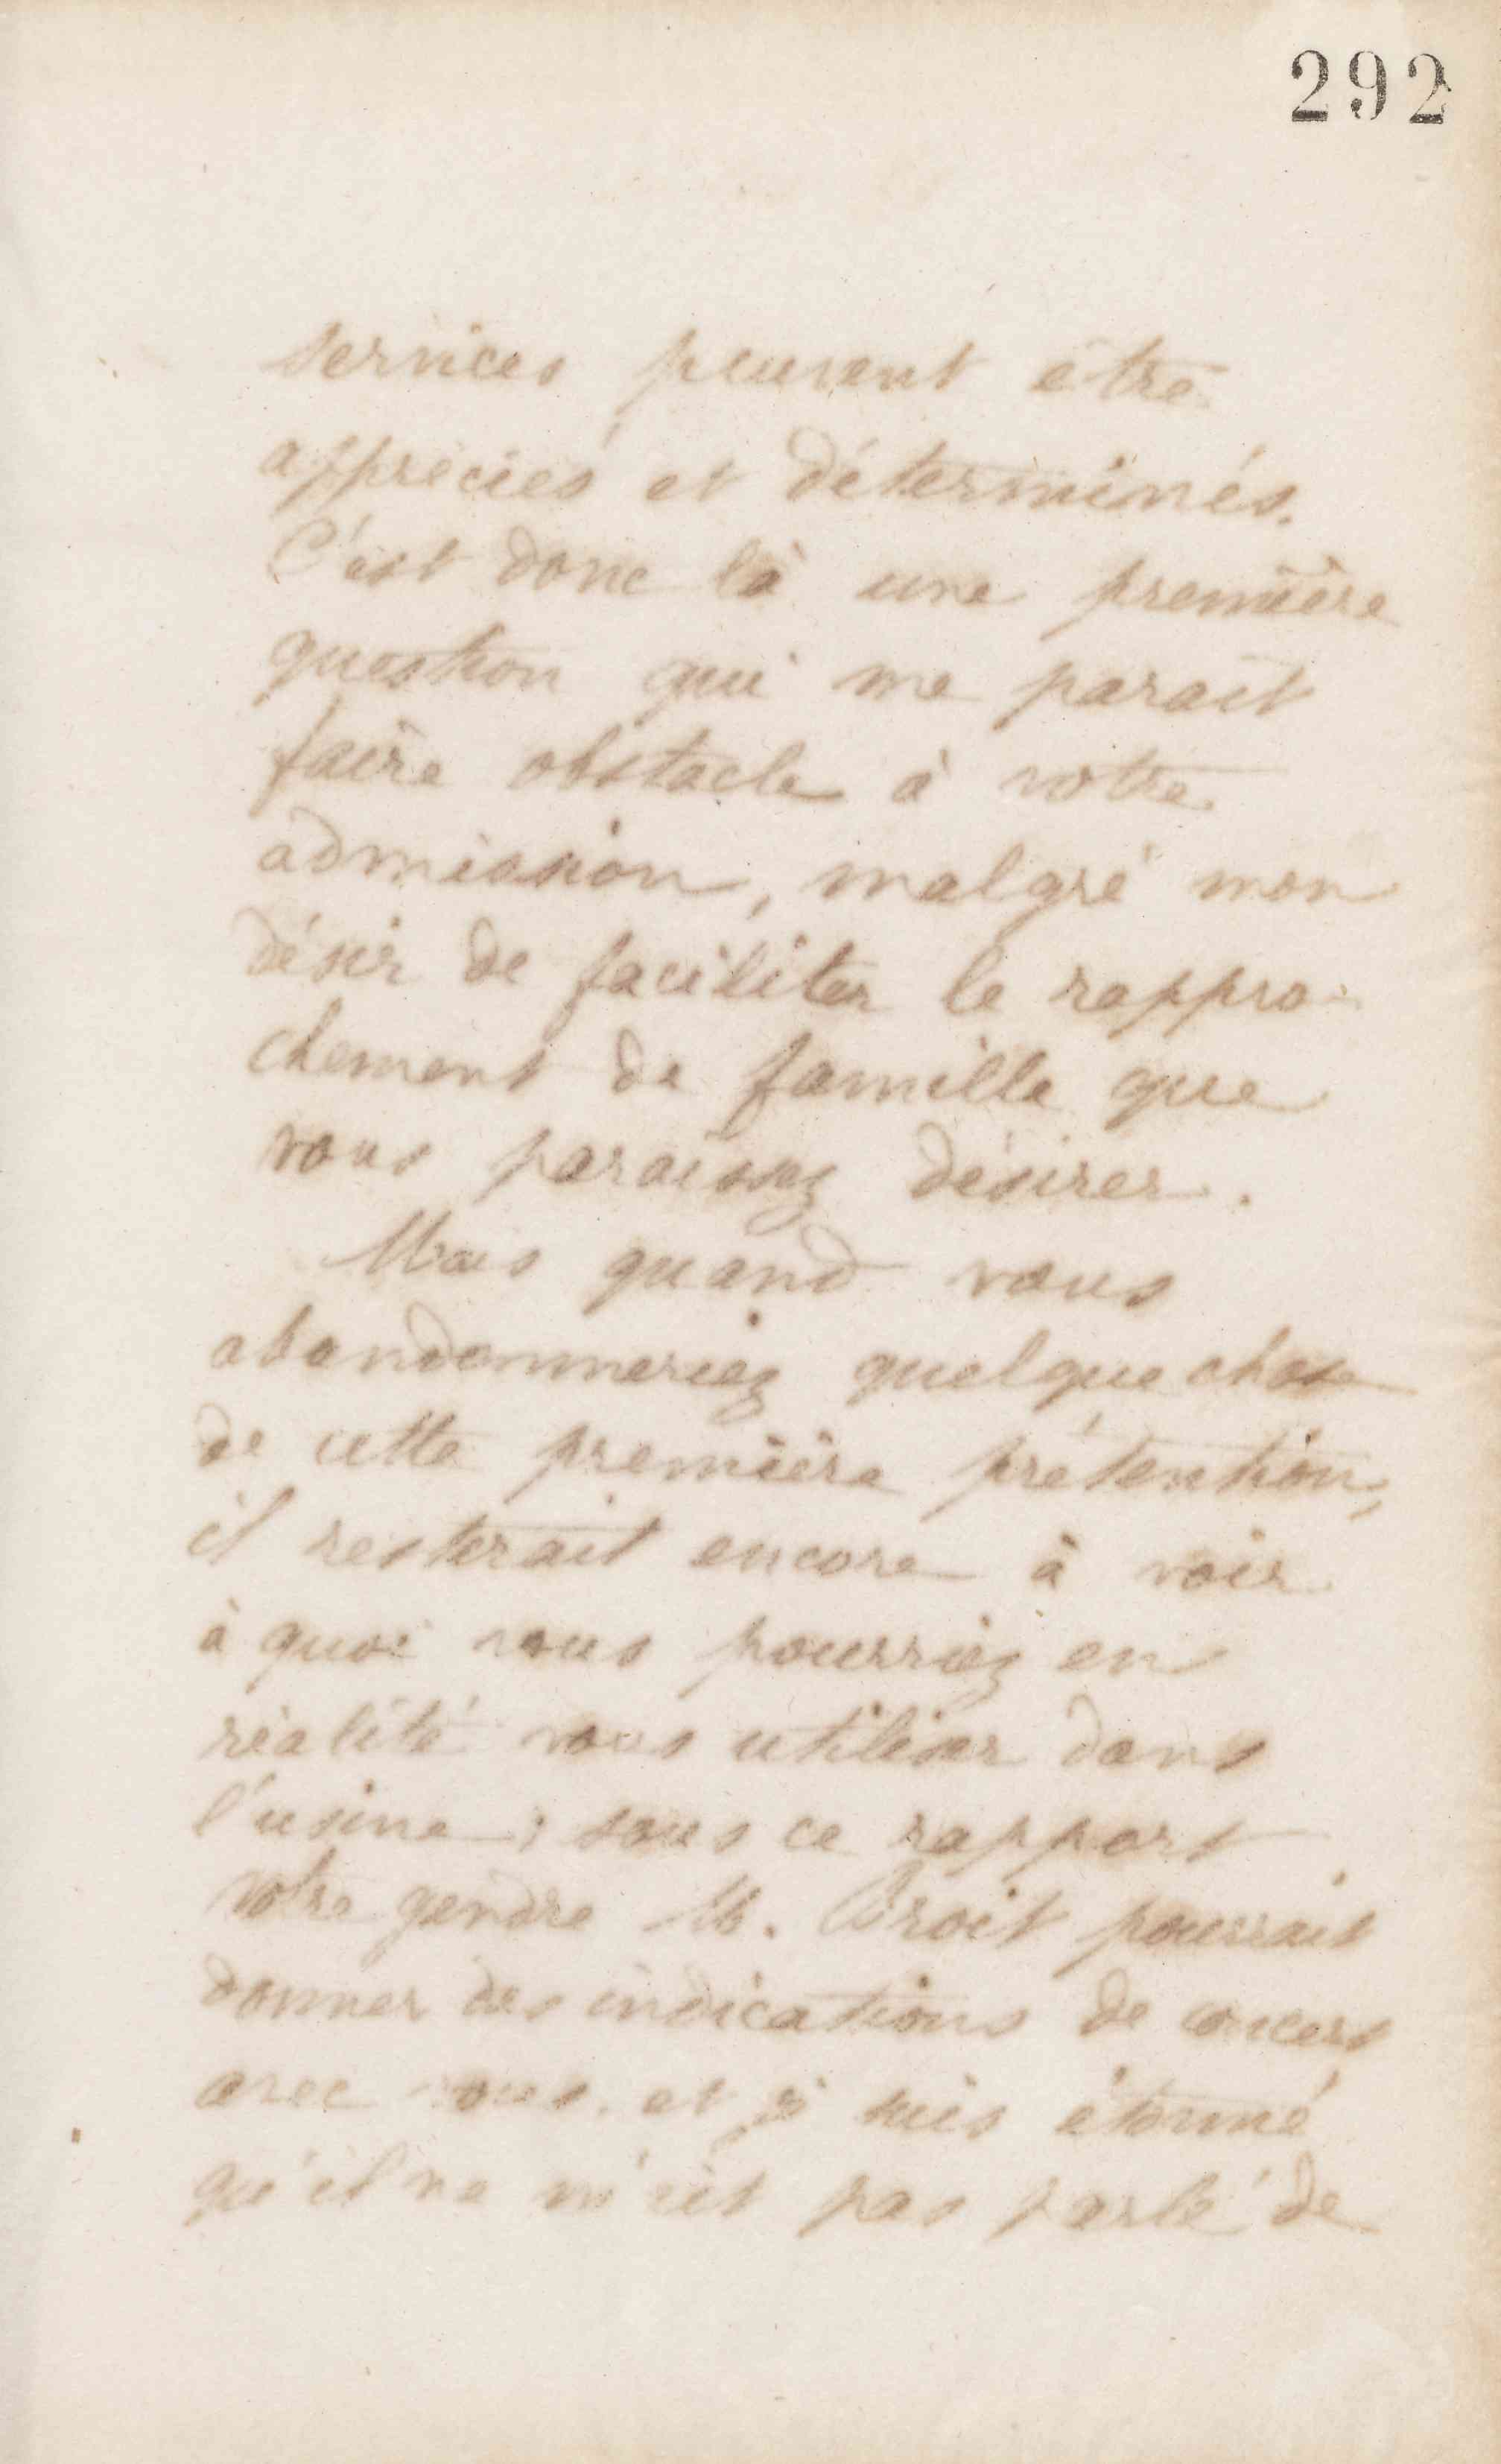 292
services peuvent être
appréciés et déterminés.
C'est donc là une première
question qui me parait
faire obstacle à votre
admission, malgré mon
désir de faciliter le rappro-
chement de famille que
vous paraissez désirer.
Mais quand vous
abandonneriez quelque chose
de cette première prétention,
il resterait encore à voir
à quoi vous pourriez en
réalité vous utiliser dans
l'usine; sous ce rapport
votre gendre M. Droit pourrait
donner des indications de concert
avec vous, et je suis étonné
qu'il ne m'ait pas parlé de